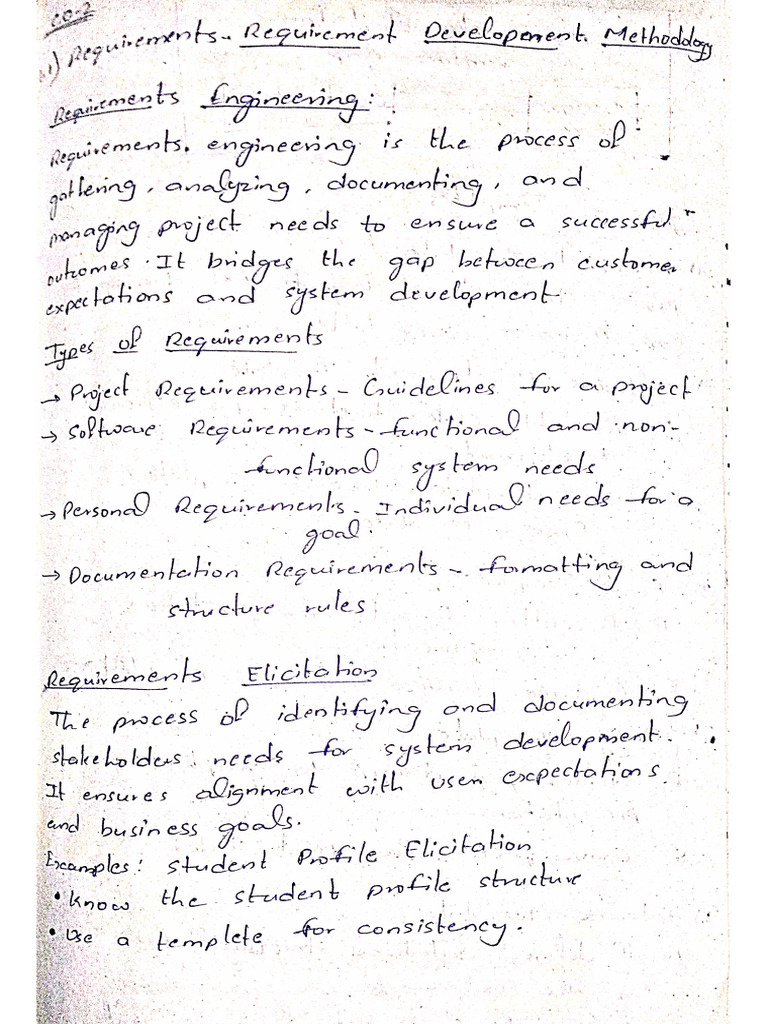 CO-2
1) Requirements - Requirement Development Methodology
Requirements Engineering:
Requirements. engineering is the process of
gathering, analyzing, documenting, and
managing project needs to ensure a successful
outcomes. It bridges the gap between customer
expectations and system development
Types of Requirements
→ Project Requirements - Guidelines for a project
→ Software Requirements - functional and non-
functional system needs
→ Personal Requirements - Individual needs for a
goal.
→ Documentation Requirements - formatting and
structure rules
Requirements Elicitation
The process of identifying and documenting
stakeholders needs for system development.
It ensures alignment with user expectations
and business goals.
Examples: Student Profile Elicitation
• Know the student profile structure
• Use a template for consistency.